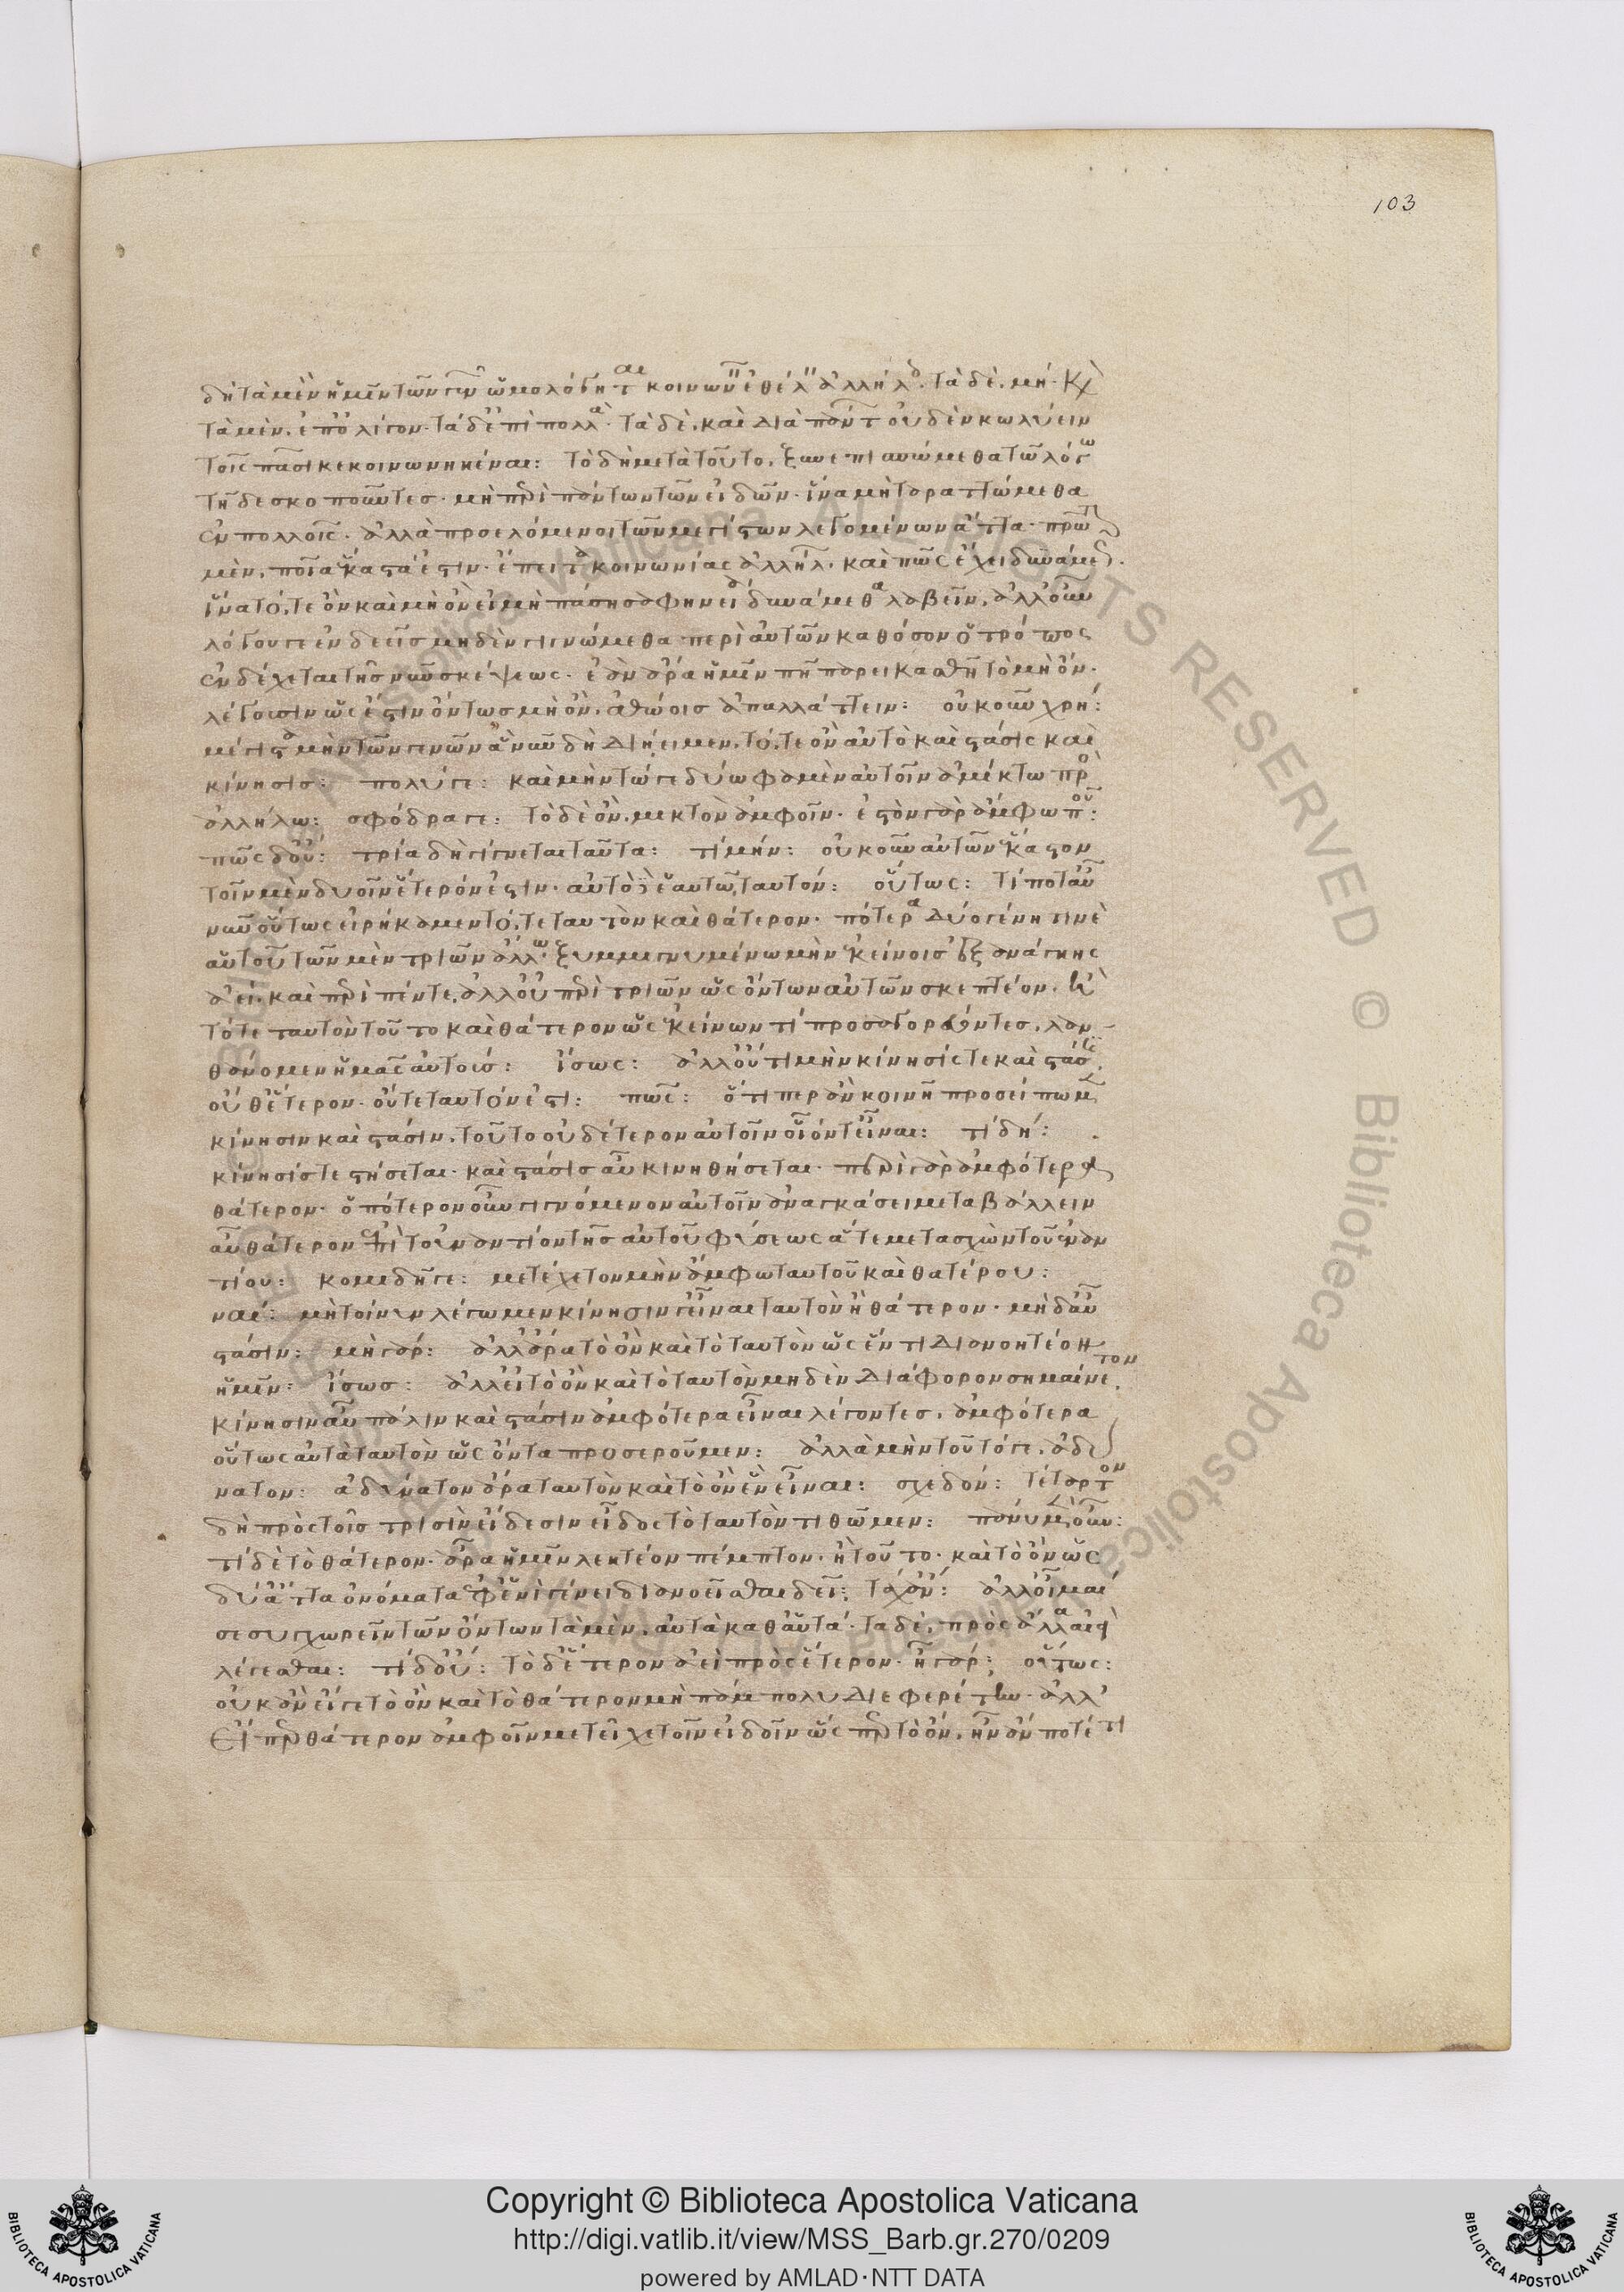 103
δὴ τὰ μὲν ἡμῖν τῶν γενῶν ὡμολόγηται κοινωνεῖν ἐθέλειν ἀλλήλοις. τὰ δὲ, μή. καὶ
τὰ μὲν, ἐπ' ὀλίγον. τὰ δ' ἐπὶ πολλὰ. τὰ δὲ, καὶ διὰ πάντων οὐδὲν κωλύειν
τοῖς πᾶσι κεκοινωνηκέναι: τὸ δὴ μετὰ τοῦτο, ξυνεπισπώμεθα τῷ λόγῳ
τῇδε σκοποῦντες. μὴ περὶ πάντων τῶν εἰδῶν. ἵνα μὴ ταραττώμεθα
ἐν πολλοῖς. ἀλλὰ προελόμενοι τῶν μεγίστων λεγομένων ἄττα. πρῶτον
μὲν, ποῖα ἕκαστά ἐστιν. ἔπειτα κοινωνίας ἀλλήλων, καὶ πῶς ἔχει δυνάμεως.
ἵνα τό, τε ὂν καὶ μὴ ὂν εἰ μὴ πάσῃ σαφηνείᾳ δυνάμεθα λαβεῖν, ἀλλ' οὖν
λόγου γε ἐνδεεῖς μηδὲν γιγνώμεθα περὶ αὐτῶν καθόσον ὁ τρόπος
ἐνδέχεται τῆς νῦν σκέψεως. ἐὰν ἄρα ἡμῖν πῃ παρεικασθῇ τὸ μὴ ὄν.
λέγουσιν ὡς ἔστιν ὄντως μὴ ὂν, ἀθώοις ἀπαλλάττειν: οὐκοῦν χρή:
μέγιστα μὴν τῶν γενῶν ἃ νῦν δὴ διῄειμεν, τό, τε ὂν αὐτὸ καὶ στάσις καὶ
κίνησις: πολύ γε: καὶ μὴν τώ γε δύω φαμὲν αὐτοῖν ἀμίκτω πρὸς
ἀλλήλω: σφόδρα γε: τὸ δὲ ὂν, μικτὸν ἀμφοῖν. ἐστὸν γὰρ ἄμφω που:
πῶς δ' οὔ: τρία δὴ γίγνεται ταῦτα: τί μήν: οὐκοῦν αὐτῶν ἕκαστον
τοῖν μὲν δυοῖν ἕτερόν ἐστιν. αὐτὸ δ' ἑαυτῷ, ταυτόν: οὕτως: τί ποτ' αὖ
νῦν οὕτως εἰρήκαμεν τό, τε ταυτὸν καὶ θάτερον. πότερα δύο γένη τινὲ
αὐτοῦ τῶν μὲν τριῶν ἄλλω. ξυμμιγνυμένω μὴν ἐκείνοις ἐξ ἀνάγκης
ἀεί. καὶ περὶ πέντε, ἀλλ' οὐ περὶ τριῶν ὡς ὄντων αὐτῶν σκεπτέον. ἢ
τό τε ταυτὸν τοῦτο καὶ θάτερον ὡς ἐκείνων τί προσαγορεύοντες, λαν-
θάνομεν ἡμᾶς αὐτούς: ἴσως: ἀλλ' οὔ τι μὴν κίνησίς τε καὶ στάσις,
οὔθ' ἕτερον. οὔτε ταυτόν ἐστι: πῶς: ὅτι περ ἂν κοινῇ προσείπωμεν
κίνησιν καὶ στάσιν, τοῦτο οὐδέτερον αὐτοῖν οἷόν τ' εἶναι: τί δή:
κίνησίς τε στήσεται. καὶ στάσις αὖ κινηθήσεται. περὶ γὰρ ἀμφότερα
θάτερον. ὁπότερον οὖν γιγνόμενον αὐτοῖν ἀναγκάσει μεταβάλλειν
αὖ θάτερον ἐπὶ τοὐναντίον τῆς αὐτοῦ φύσεως ἅτε μετασχὸν τοῦ ἐναν
τίου: κομιδῇ γε: μετέχετον μὴν ἄμφω ταυτοῦ καὶ θατέρου:
ναί: μὴ τοίνυν λέγωμεν κίνησιν γ' εἶναι ταυτὸν ἢ θάτερον. μὴ δ' αὖ
στάσιν: μὴ γάρ: ἀλλ' ἆρα τὸ ὂν καὶ τὸ ταυτὸν ὡς ἕν τι διανοητέον
ἡμῖν: ἴσως: ἀλλ' εἰ τὸ ὂν καὶ τὸ ταυτὸν μηδὲν διάφορον σημαίνετον,
κίνησιν αὖ πάλιν καὶ στάσιν ἀμφότερα εἶναι λέγοντες, ἀμφότερα
οὕτως αὐτὰ ταυτὸν ὡς ὄντα προσεροῦμεν: ἀλλὰ μὴν τοῦτό γε, ἀδύ
νατον: ἀδύνατον ἄρα ταυτὸν καὶ τὸ ὂν ἓν εἶναι: σχεδόν: τέταρτον
δὴ πρὸς τοῖς τρισὶν εἴδεσιν εἶδος τὸ ταυτὸν τιθῶμεν: πάνυ μὲν οὖν:
τί δὲ τὸ θάτερον. ἆρα ἡμῖν λεκτέον πέμπτον. ἢ τοῦτο. καὶ τὸ ὂν ὡς
δύ' ἄττα ὀνόματα ἐφ' ἑνὶ γένει διανοεῖσθαι δεῖ: τάχ' ἄν: ἀλλ' οἶμαί
σε συγχωρεῖν τῶν ὄντων τὰ μὲν, αὐτὰ καθ' αὑτά. τὰ δὲ, πρὸς ἄλλα ἀεὶ
λέγεσθαι: τί δ' οὔ: τὸ δ' ἕτερον ἀεὶ πρὸς ἕτερον. ἦ γάρ: οὕτως:
οὐκ ἂν εἴ γε τὸ ὂν καὶ τὸ θάτερον μὴ πάμπολυ διεφερέτην. ἀλλ'
εἴπερ θάτερον ἀμφοῖν μετεῖχε τοῖν εἰδοῖν ὥσπερ τὸ ὄν, ἦν ἄν ποτέ τι
Copyright © Biblioteca Apostolica Vaticana
http://digi.vatlib.it/view/MSS_Barb.gr.270/0209
powered by AMLAD·NTT DATA